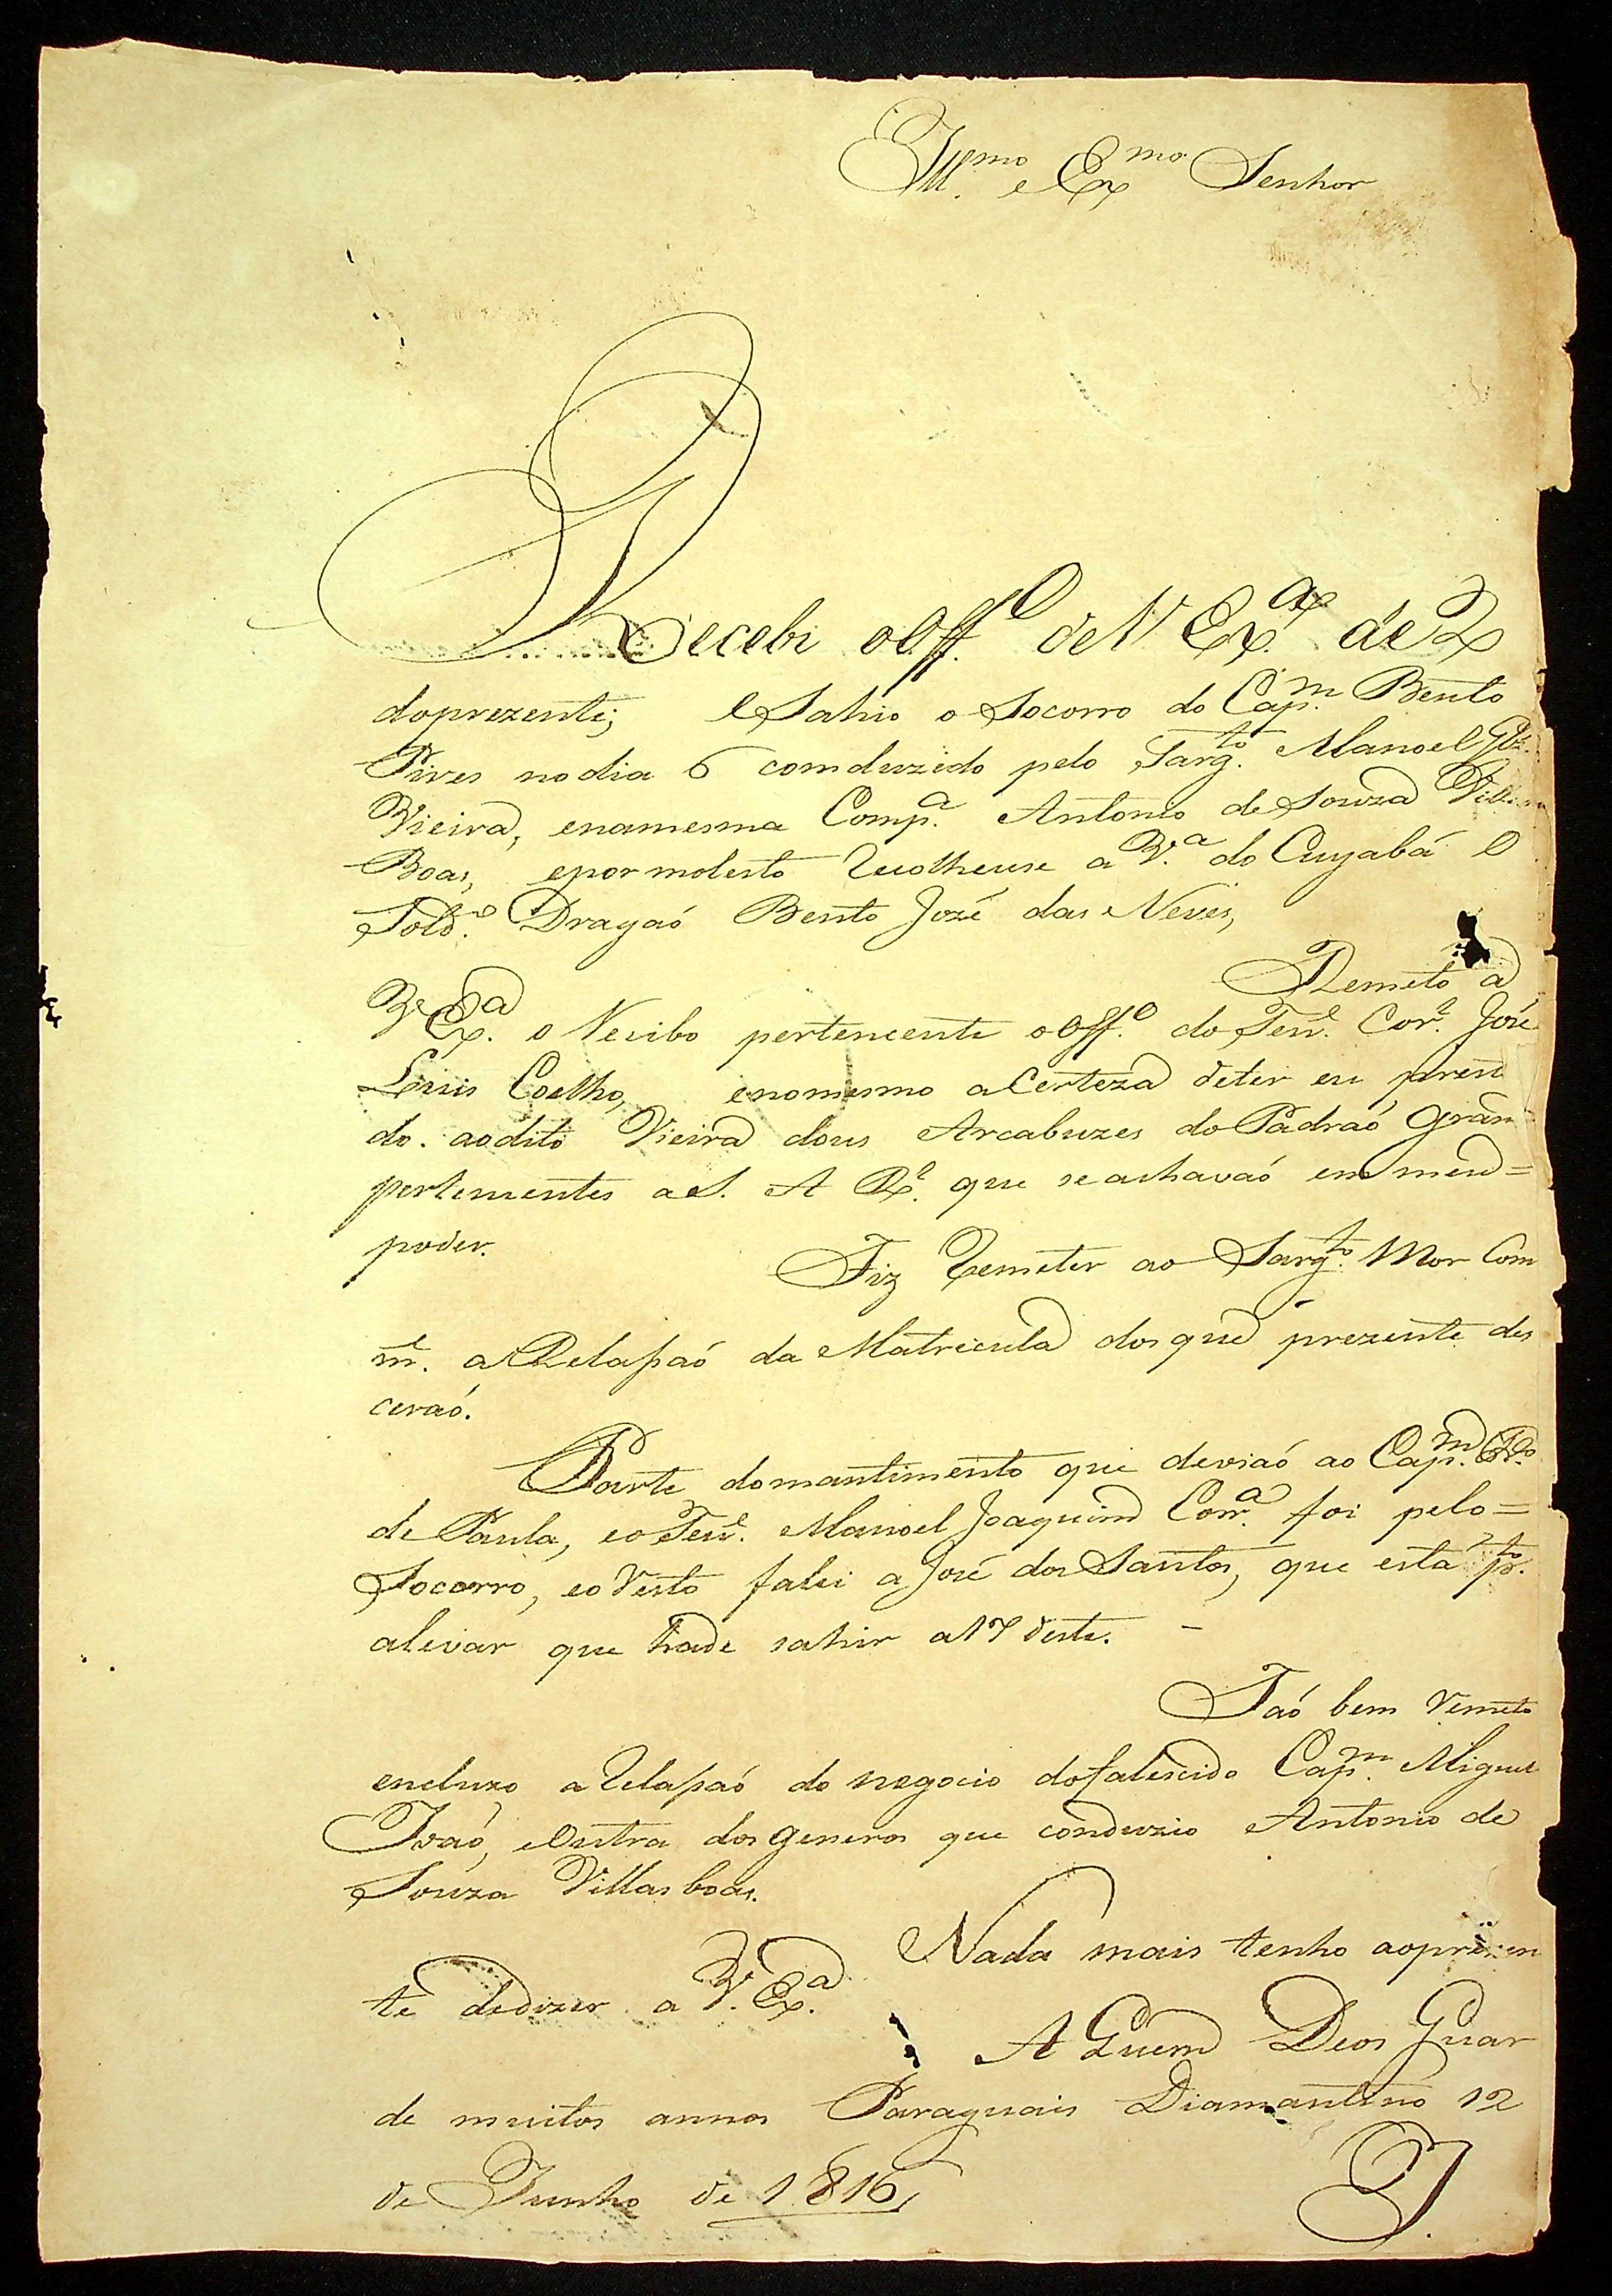 Ill.mo e Ex.mo Senhor
Recebi o Off.o de V Ex.a de 2
do prezente; e Sahio o Socorro do Cap.m Bento
Pires no dia 6 comduzido pelo Sarg.to Manoel
Vieira, e na mesma Comp.a Antonio de Souza Villas
Boas, e por molesto recolheuse a V.a do Cuyabá o
Sold.o Dragaó Bento Jozé das Neves,
Remeto a
V. Ex.a o recibo pertencente o Off.o do Ten.e Cor.l Jozé
Luis Coelho, e no mesmo a Certeza de ter eu
do ao dito Vieira dous Arcabuzes do Padraó
pertencentes a S. A R.l que se achavaó em meu=
poder.
Fiz remeter ao Sarg.to Mor Com
m.e a Relaçaó da Matricula dos que prezente des
ceraó.
Parte do mantimento que deviaó ao Cap.m
de Paula, e o Ten.e Manoel Joaquim Corr.a foi pelo=
Socorro, e o resto falei a José dos Santos, que está p.a
a levar que hade sahir a 17 deste. -
Taó bem remeto
encluzo a relaçaó do negocio do falescido Cap.m Miguel
Ivaó, e Outra dos generos que conduzio Antonio de
Souza Villas boas.
Nada mais tenho ao prezen
te de dizer a V. Ex.a
A Quem Deos Guar
de muitos annos Paraguais Diamantino 12
de Junho de 1816,